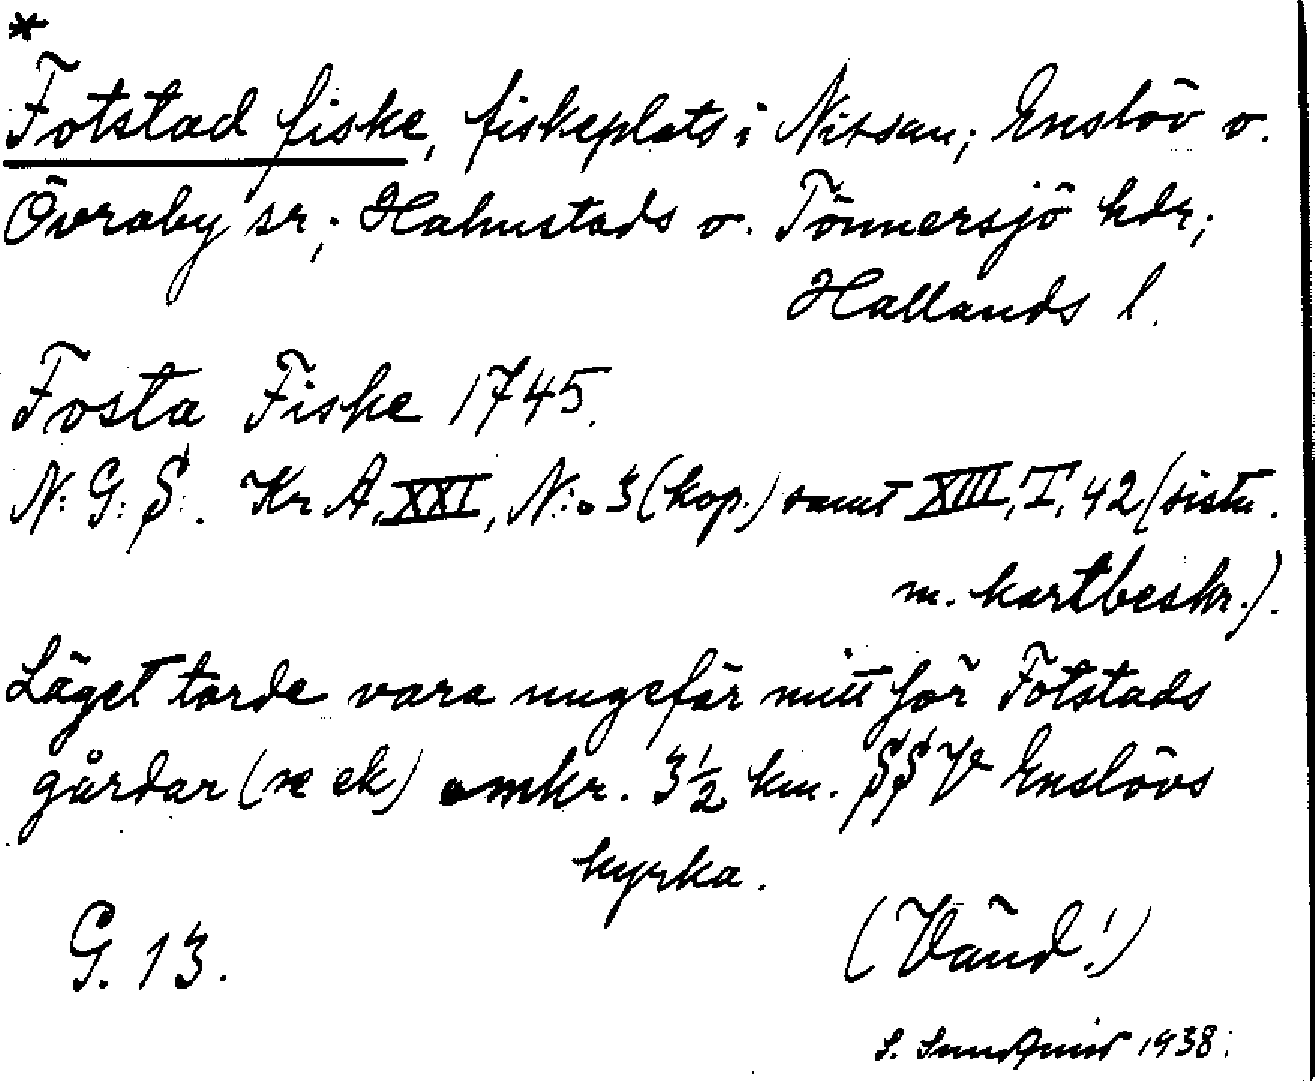 *
Fotstad fiske, fiskeplats i Nissan; Enslöv o.
Övraby sr; Halmstads o. Tönnersjö hdr;
Hallands l.
Fosta Fiske 1745.
N:G:S. Kr A, XXI, N:o 3 (kop.) samt XIII, I, 42 (sistn.
m. kartbeskr.).
Läget torde vara ungefär mitt för Fotstads
gårdar (se ek) omkr. 3½ km. SSV Enslövs
kyrka.
G. 13.
(Vänd!)
S. Sundqvist 1938.